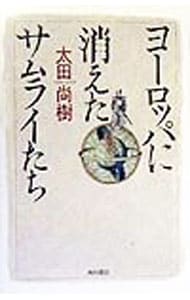 ヨーロッパに
消えた
サムライたち
太田尚樹
角川書店